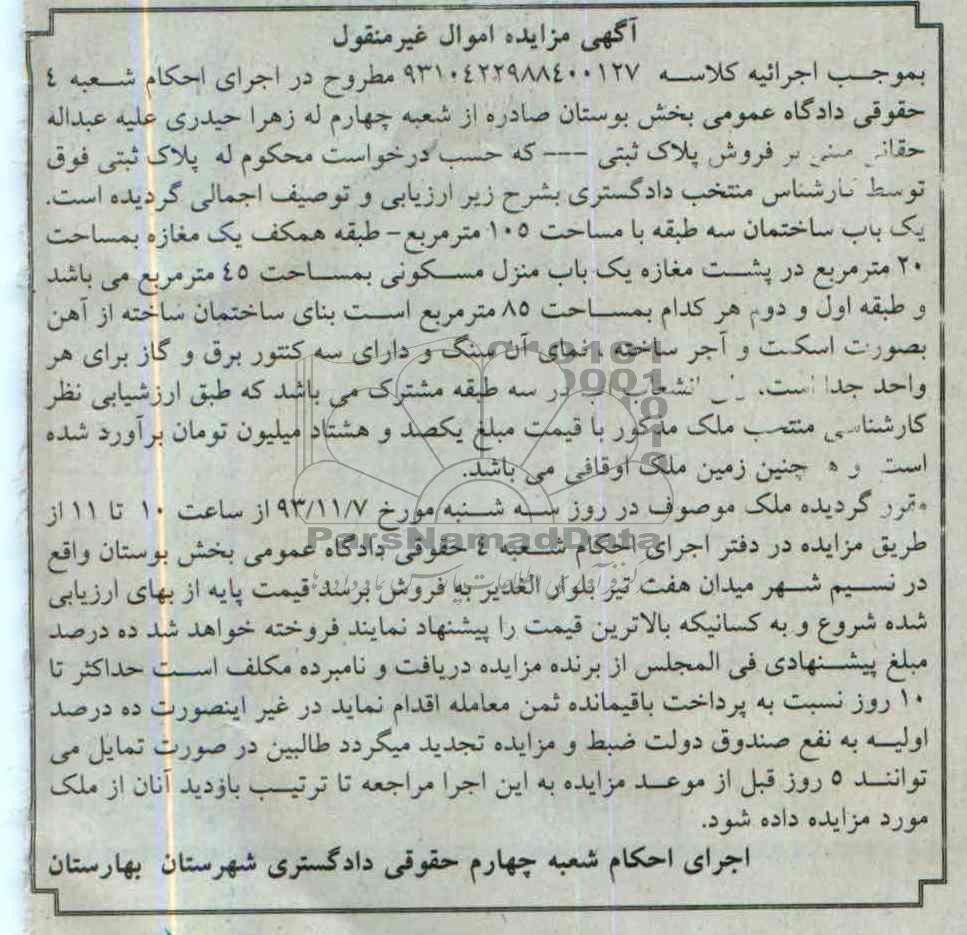 آگهی مزایده اموال غیرمنقول
بموجب اجرائیه کلاسه ۹۳۱۰۴۲۲۹۸۸۴۰۰۱۲۷ مطروح در اجرای احکام شعبه ٤
حقوقی دادگاه عمومی بخش بوستان صادره از شعبه چهارم له زهرا حیدری علیه عبداله
مبنی بر فروش پلاک ثبتی --- که حسب درخواست محکوم له پلاک ثبتی فوق
توسط کارشناس منتخب دادگستری بشرح زیر ارزیابی و توصیف اجمالی گردیده است.
یک باب ساختمان سه طبقه با مساحت ۱۰۵ مترمربع- طبقه همکف یک مغازه بمساحت
۲۰ مترمربع در پشت مغازه یک باب منزل مسکونی بمساحت ٤٥ مترمربع می باشد
و طبقه اول و دوم هر کدام بمساحت ۸۵ مترمربع است بنای ساختمان ساخته از آهن
بصورت اسکت و آجر ساخته ، نمای آن سنگ و دارای سه کنتور برق و گاز برای هر
واحد جدا است. انشعاب آب در سه طبقه مشترک می باشد که طبق ارزشیابی نظر
کارشناسی منتخب ملک مذکور با قیمت مبلغ یکصد و هشتاد میلیون تومان برآورد شده
است و همچنین زمین ملک اوقافی می باشد.
مقرر گردیده ملک موصوف در روز سه شنبه مورخ ۹۳/۱۱/۷ از ساعت ۱۰ تا ۱۱ از
طریق مزایده در دفتر اجرای احکام شعبه ٤ حقوقی دادگاه عمومی بخش بوستان واقع
در نسیم شهر میدان هفت تیر بلوار الغدیر به فروش برسد قیمت پایه از بهای ارزیابی
شده شروع و به کسانیکه بالاترین قیمت را پیشنهاد نمایند فروخته خواهد شد ده درصد
مبلغ پیشنهادی فی المجلس از برنده مزایده دریافت و نامبرده مکلف است حداکثر تا
۱۰ روز نسبت به پرداخت باقیمانده ثمن معامله اقدام نماید در غیر اینصورت ده درصد
اولیه به نفع صندوق دولت ضبط و مزایده تجدید میگردد طالبین در صورت تمایل می
توانند ۵ روز قبل از موعد مزایده به این اجرا مراجعه تا ترتیب بازدید آنان از ملک
مورد مزایده داده شود.
اجرای احکام شعبه چهارم حقوقی دادگستری شهرستان بهارستان
ParsNamadData